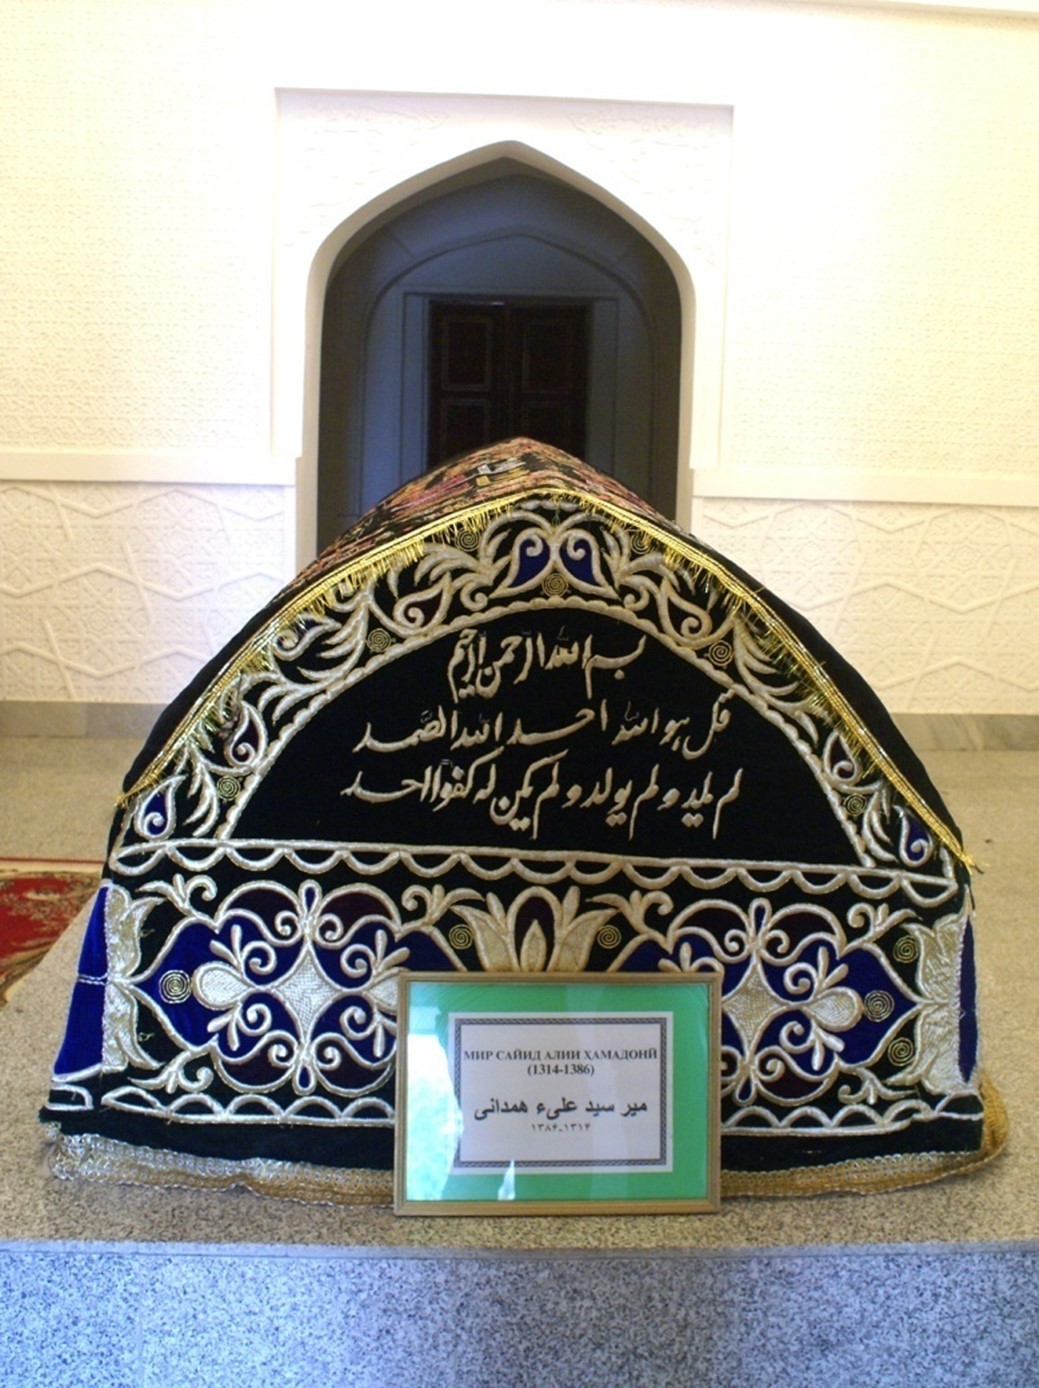 بسم الله الرحمن الرحیم
قل هو الله احد الله الصمد
لم یلد و لم یولد و لم یکن له کفوا احد
МИР САЙИД АЛИИ ҲАМАДОНӢ
(1314-1386)
میر سید علیء همدانی
۱۳۱۴-۱۳۸۶